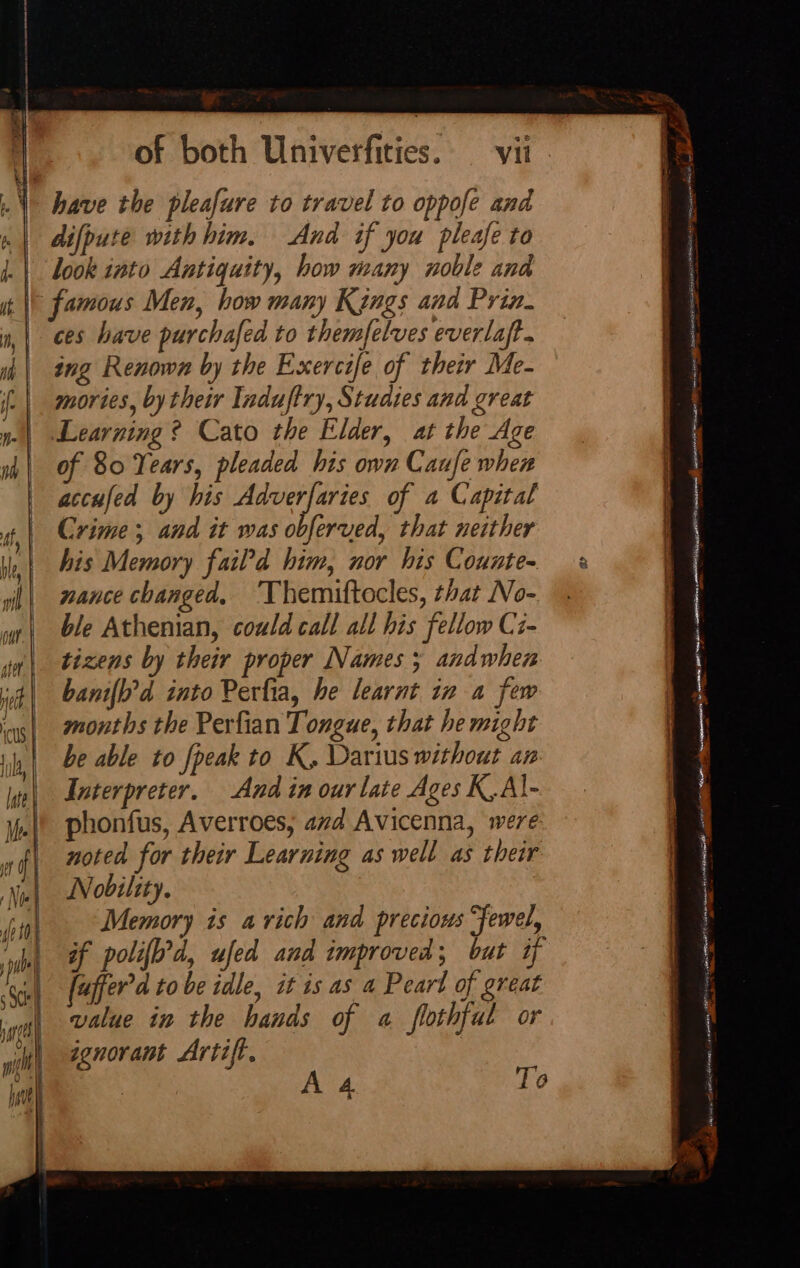 of both Univerſities. vii
have the pleaſure to travel to oppoſe and
diſpute with him. And if you pleaſe to
look into Antiquity, how many noble and
famous Men, how many Kings and Prin-
ces have purchaſed to themſelves everlaſt-
ing Renown by the Exerciſe of their Me-
mories, by their Induſtry, Studies and great
Learning? Cato the Elder, at the Age
of 80 Years, pleaded his own Cauſe when
accuſed by his Adverſaries of a Capital
Crime; and it was obſerved, that neither
his Memory fail'd him, nor his Counte-
nance changed. Themiſtocles, that No-
ble Athenian, could call all his fellow Ci-
tizens by their proper Names; and when
baniſh'd into Perſia, he learnt in a few
months the Perſian Tongue, that he might
be able to ſpeak to K. Darius without an
Interpreter. And in our late Ages K. Al-
phonſus, Averroes, and Avicenna, were
noted for their Learning as well as their
Nobility.
Memory is a rich and precious Jewel,
if poliſh'd, uſed and improved; but if
ſuffer'd to be idle, it is as a Pearl of great
value in the hands of a ſlothful or
ignorant Artiſt.
A 4 To